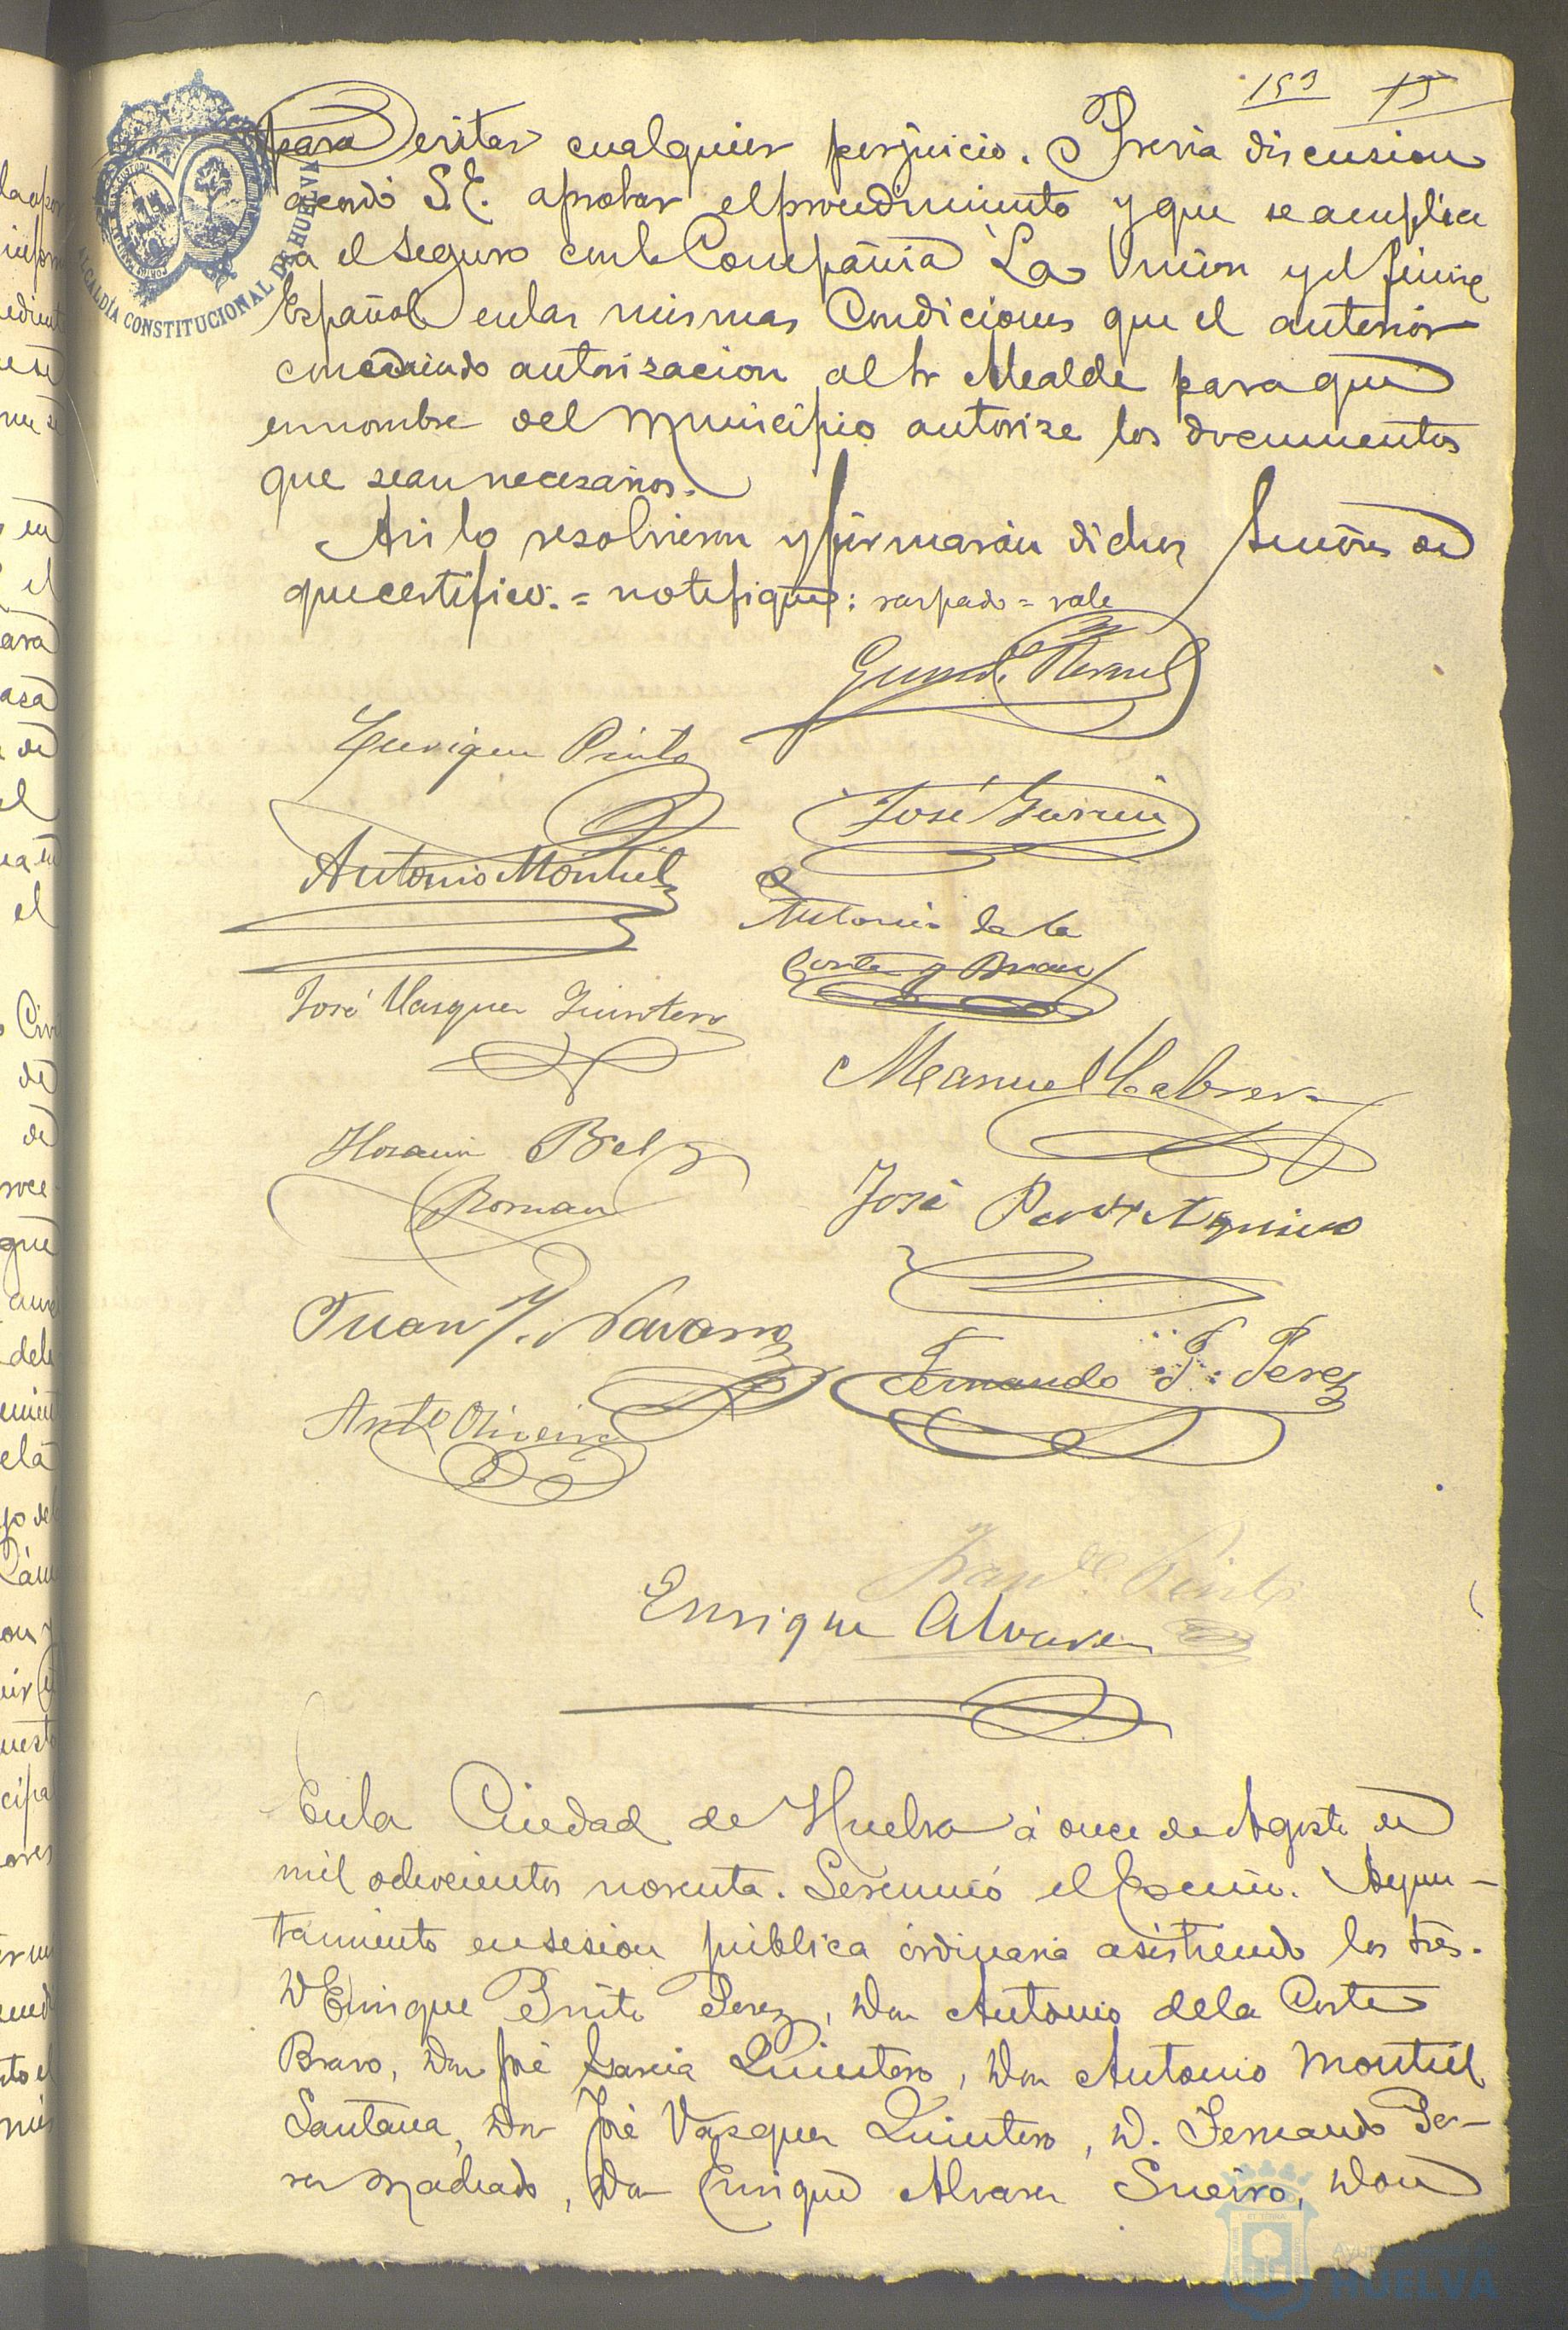 153 15
para evitar cualquier perjuicio. Previa discusion
acordó S.E. aprobar el procedimiento y que se amplia
ra el seguro con la Compañia La Union y el Fenix
Español en las mismas Condiciones que el anterior
concediendo autorizacion al Sr Alcalde para que
en nombre del Municipio autorize los documentos
que sean necesarios.
Asi lo resolvieron y firmarán dichos Señores de
que certifico. = notifique: raspado = vale
Enrique Pinto
José Garcia
Antonio Montiel
Antonio de la
Corte y Bravo
José Vazquez Quintero
Manuel Cabrera
Horacio Bel
Roman
José Aquino
Juan Y. Navarro
Fernando P. Perez
Antº Oliveira
Enrique Alvarez
En la Ciudad de Huelva á once de Agosto de
mil ochocientos noventa. Se reunió el Excmo. Ayun-
tamiento en sesion publica ordinaria asistiendo los Sres.
D Enrique Pinto Perez, Don Antonio de la Corte
Bravo, Don José Garcia Quintero, Don Antonio Montiel
Santana, Don José Vazquez Quintero, D. Fernando Pe-
rez Machado, Don Enrique Alvarez Sueiro, Don
ALCALDÍA CONSTITUCIONAL DE HUELVA
HUELVA